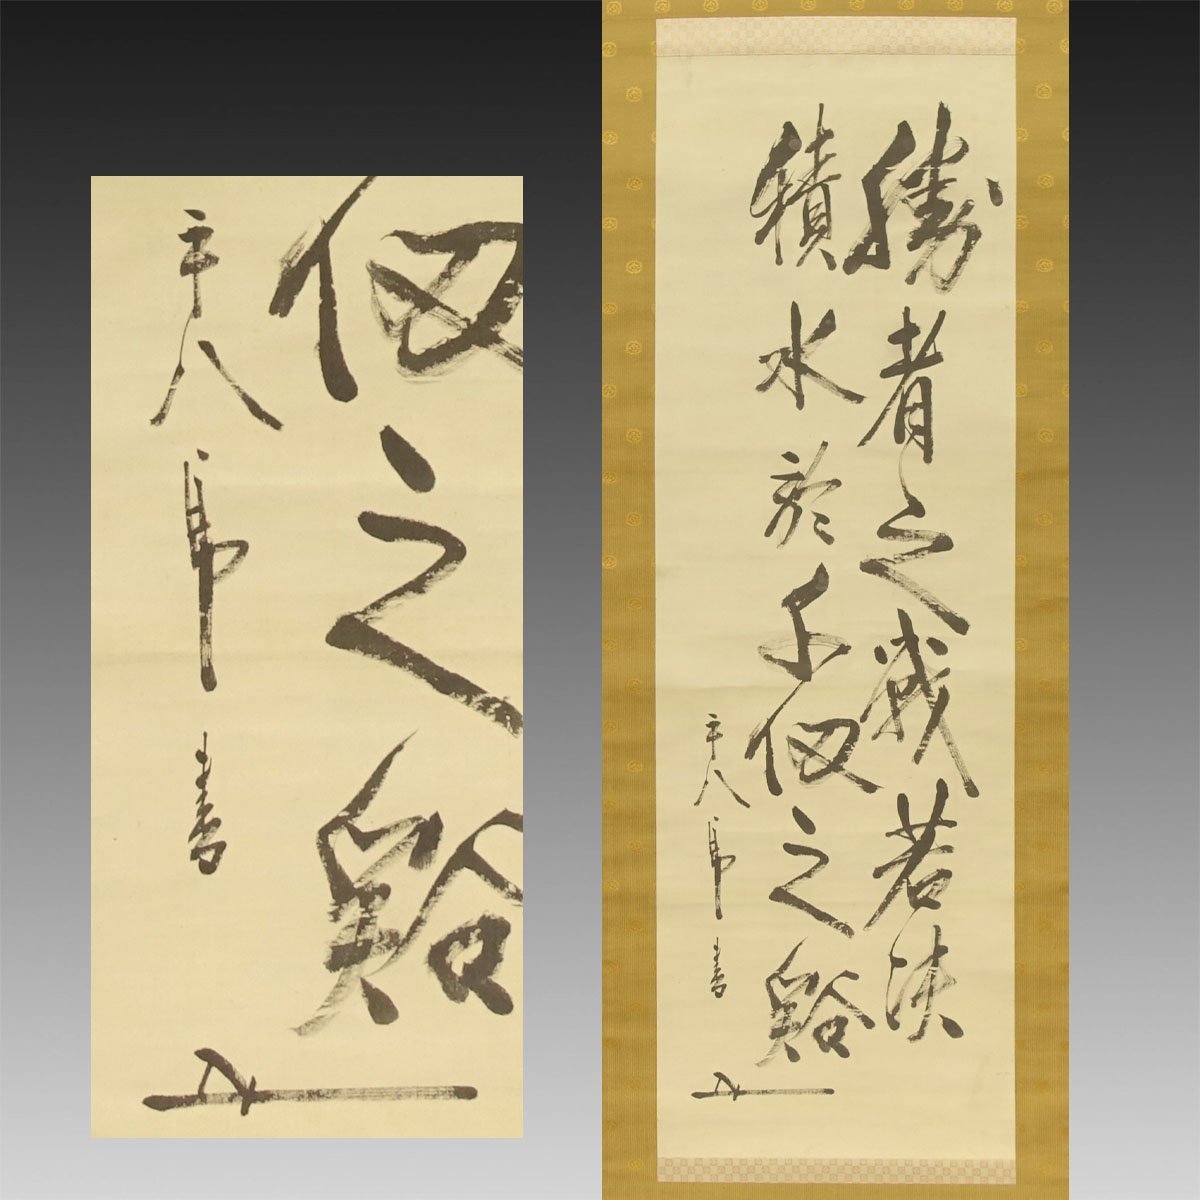 勝者之戦若決
積水於千仞之谿
平八郎書
仞之谿
平八郎書